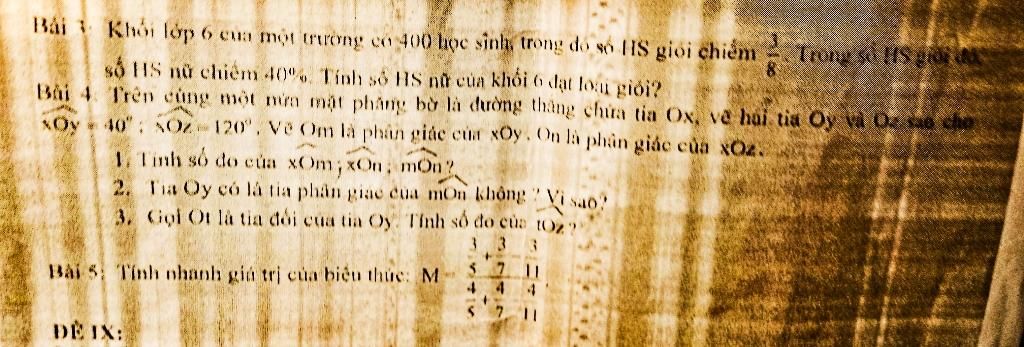 Bài 3: Khối lớp 6 của một trường có 400 học sinh, trong đó số HS giỏi chiếm 3/8. Trong số HS giỏi đó,
số HS nữ chiếm 40%. Tính số HS nữ của khối 6 đạt loại giỏi?
Bài 4: Trên cùng một nửa mặt phẳng bờ là đường thẳng chứa tia Ox, vẽ hai tia Oy và Oz sao cho
xOy = 40°; xOz = 120°. Vẽ Om là phân giác của xOy, On là phân giác của xOz.
1. Tính số đo của xOm; xOn; mOn?
2. Tia Oy có là tia phân giác của mOn không? Vì sao?
3. Gọi Ot là tia đối của tia Oy. Tính số đo của tOz?
Bài 5: Tính nhanh giá trị của biểu thức: M = (3/5 + 3/7 - 3/11) / (4/5 + 4/7 - 4/11).
ĐỀ IX: